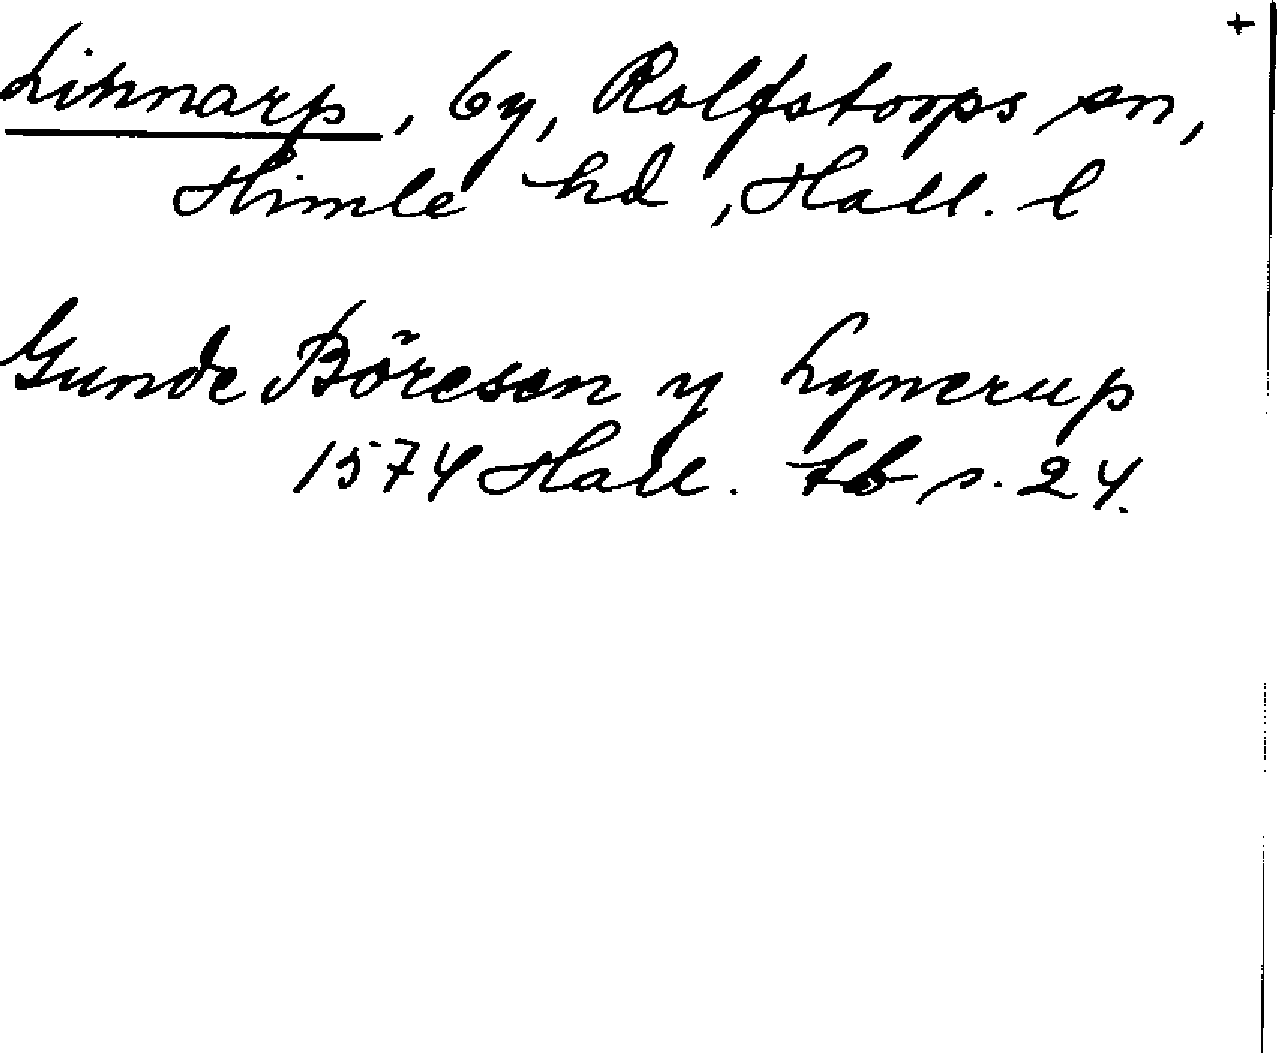 +
Linnarp, by, Rolfstorps sn,
Himle hd, Hall. l
Gunde Böresen y Lynerup
1574 Hall. tb s. 24.